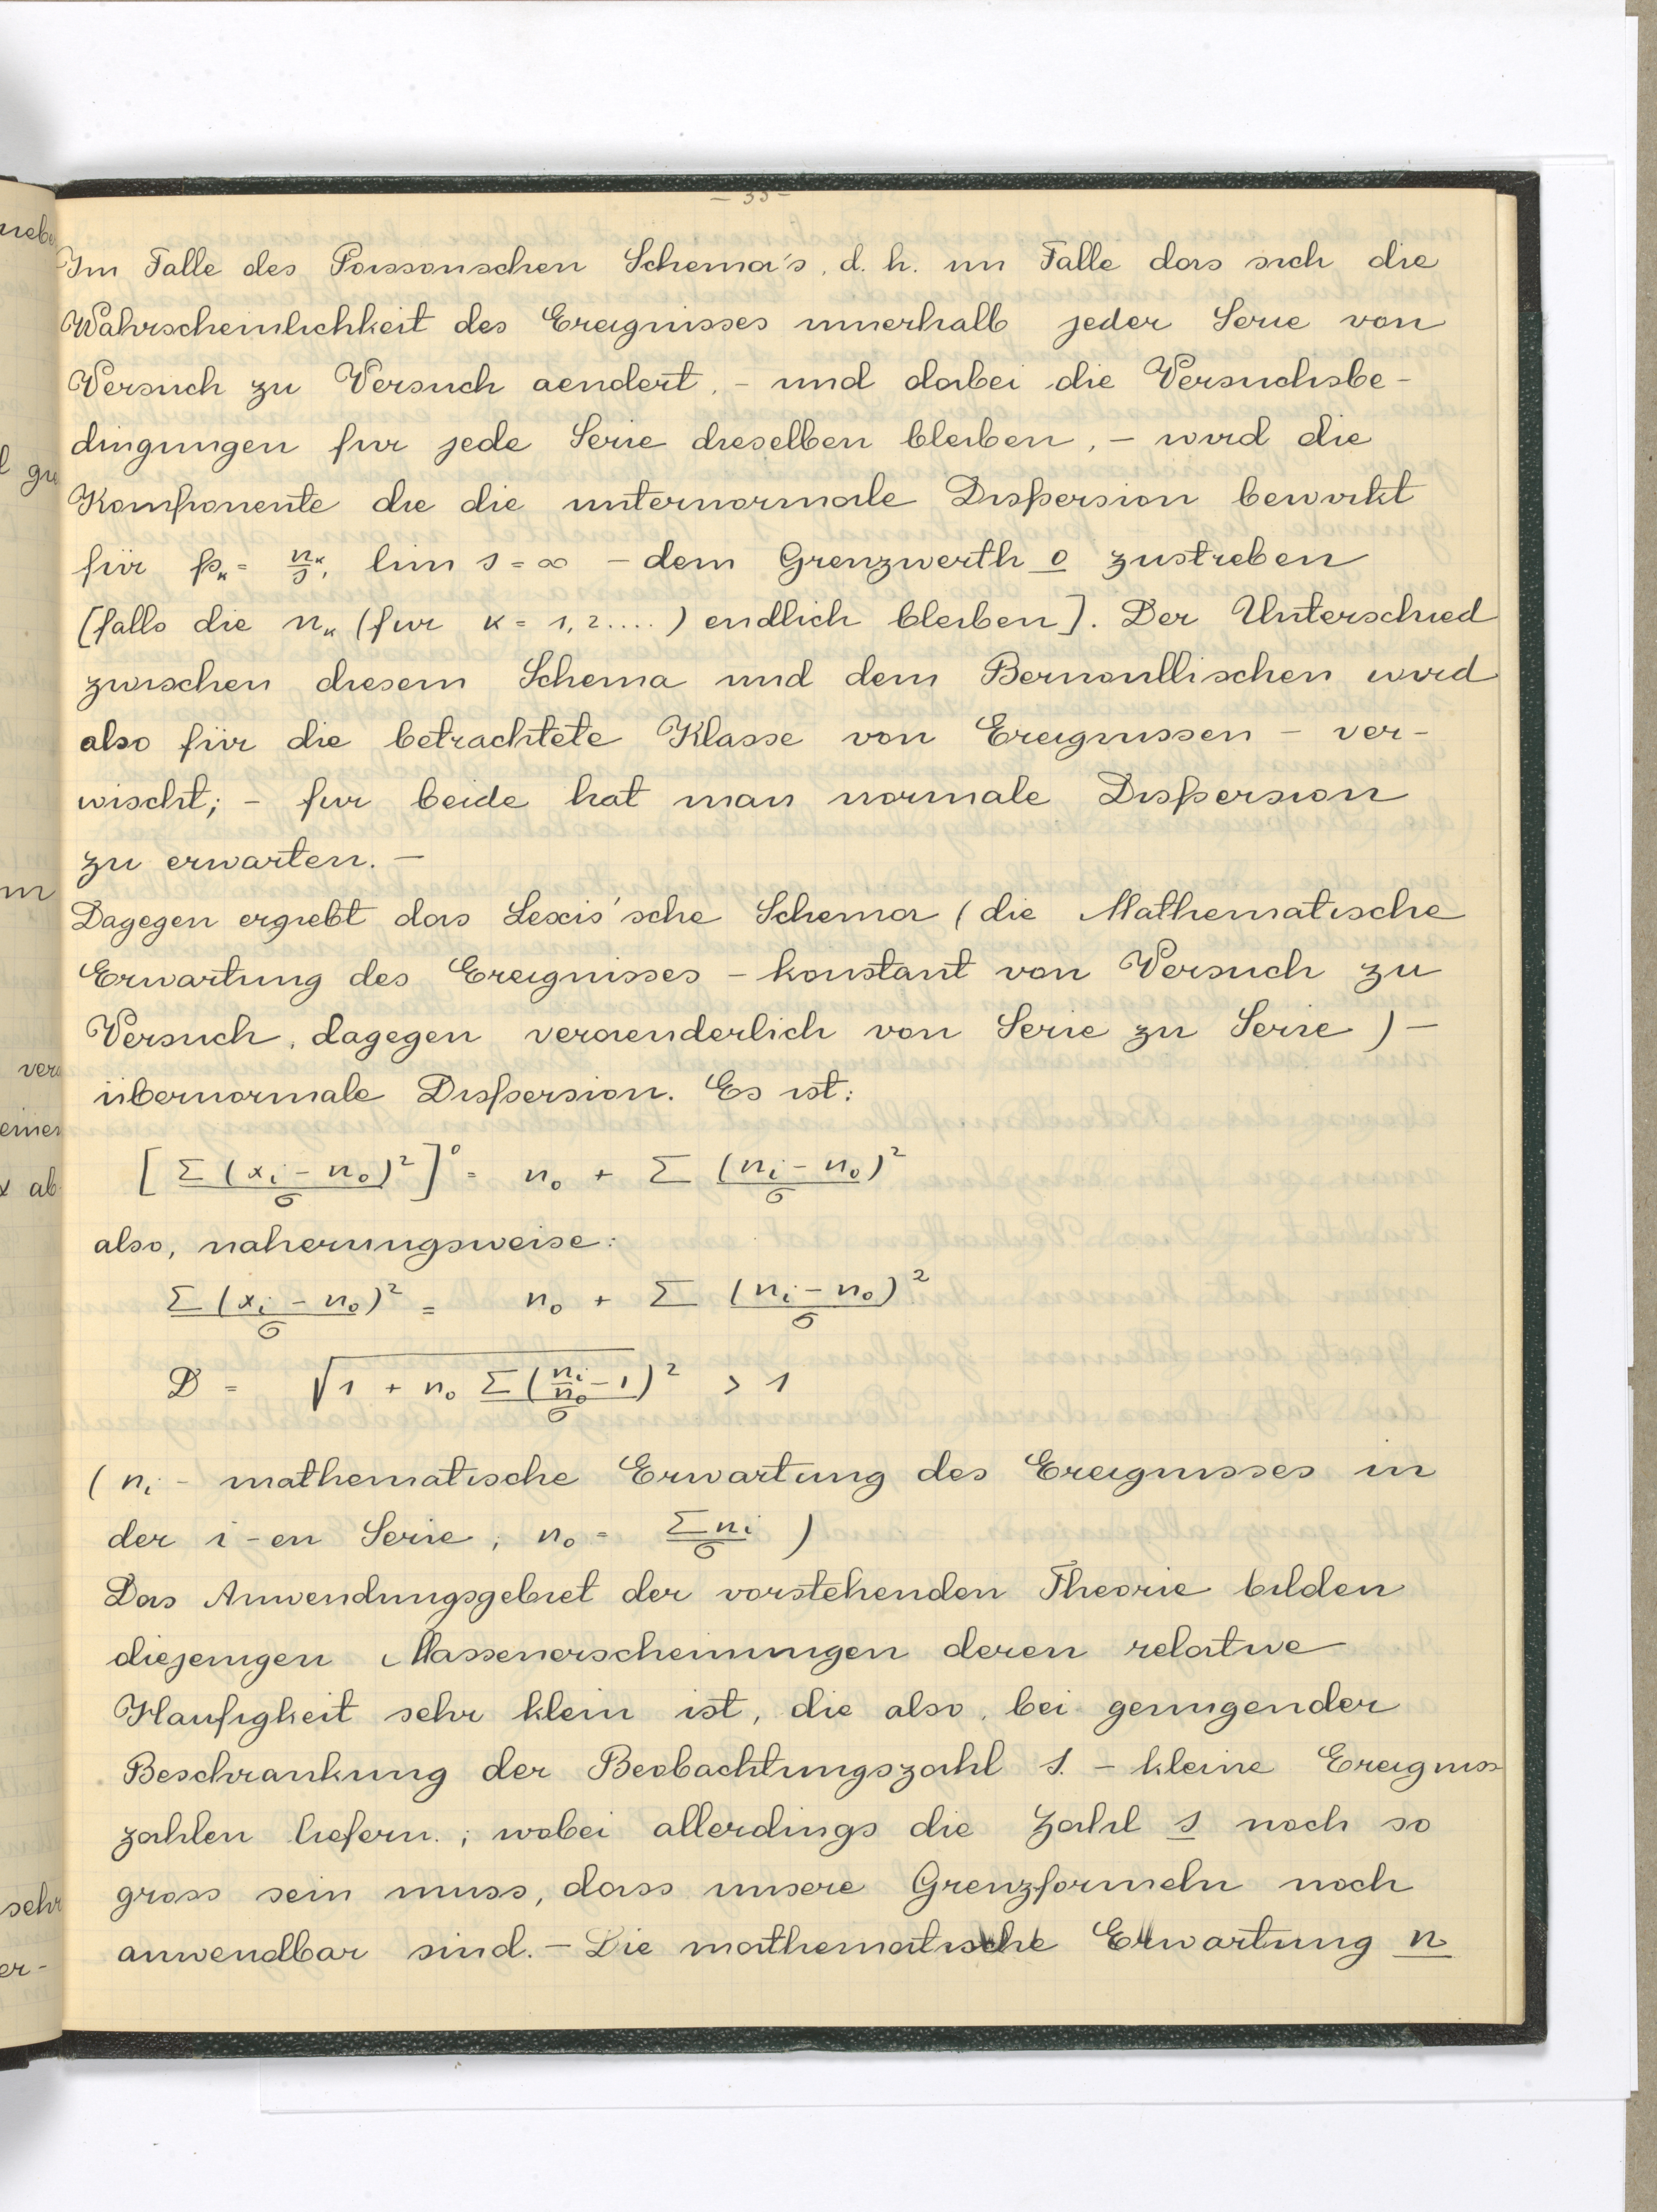 Im Falle des Poissonschen Schema's, d. h. im Falle das sich die
Wahrscheinlichkeit des Ereignisses innerhalb jeder Serie von
Versuch zu Versuch aendert, - und dabei die Versuchsbe-
dingungen fur jede Serie dieselben bleiben, - wird die
Komponente die die unternormale Dispersion bewirkt
für pₖ = nₖ/s, lim s = ∞ - dem Grenzwerth 0 zustreben
[falls die nₖ (fur k = 1, 2....) endlich bleiben]. Der Unterschied
zwischen diesem Schema und dem Bernoullischen wird
also für die betrachtete Klasse von Ereignissen - ver-
wischt; - fur beide hat man normale Dispersion
zu erwarten. -
Dagegen ergiebt das Lexis'sche Schema (die Mathematische
Erwartung des Ereignisses - konstant von Versuch zu
Versuch, dagegen veraenderlich von Serie zu Serie) -
übernormale Dispersion. Es ist:
[Σ(xᵢ - n₀)²/σ]⁰ = n₀ + Σ(nᵢ - n₀)²/σ
also, naherungsweise:
Σ(xᵢ - n₀)²/σ = n₀ + Σ(nᵢ - n₀)²/σ
D = √(1 + n₀ Σ(nᵢ/n₀ - 1)²/σ) > 1
(nᵢ - mathematische Erwartung des Ereignisses in
der i-en Serie, n₀ = Σnᵢ/σ)
Das Anwendungsgebiet der vorstehenden Theorie bilden
diejenigen Massenerscheinungen deren relative
Haufigkeit sehr klein ist, die also, bei genugender
Beschrankung der Beobachtungszahl s. - kleine Ereigniss
zahlen liefern.; wobei allerdings die Zahl s noch so
gross sein muss, dass unsere Grenzformeln noch
anwendbar sind. - Die mathematische Erwartung n